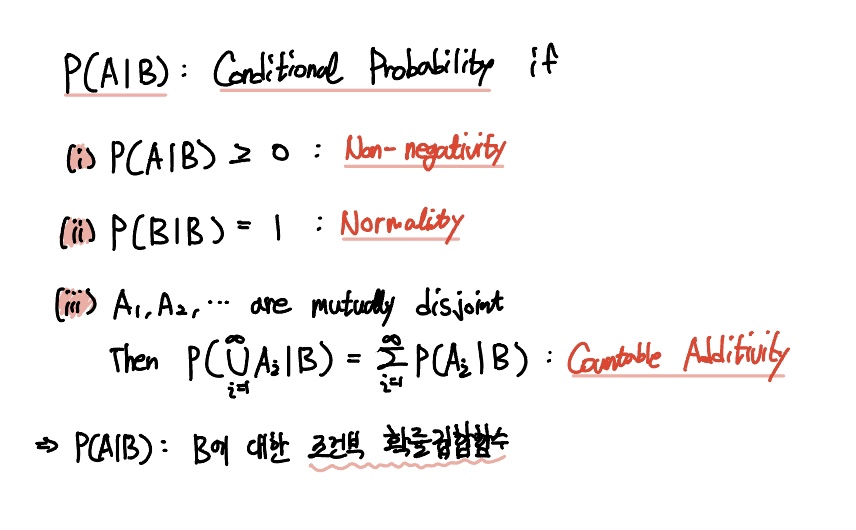 P(A|B) : Conditional Probability if
(i) P(A|B) ≥ 0 : Non-negativity
(ii) P(B|B) = 1 : Normality
(iii) A₁, A₂, ⋯ are mutually disjoint
Then P(⋃_{i=1}^{∞} Aᵢ|B) = ∑_{i=1}^{∞} P(Aᵢ|B) : Countable Additivity
⇒ P(A|B) : B에 대한 조건부 확률집합함수